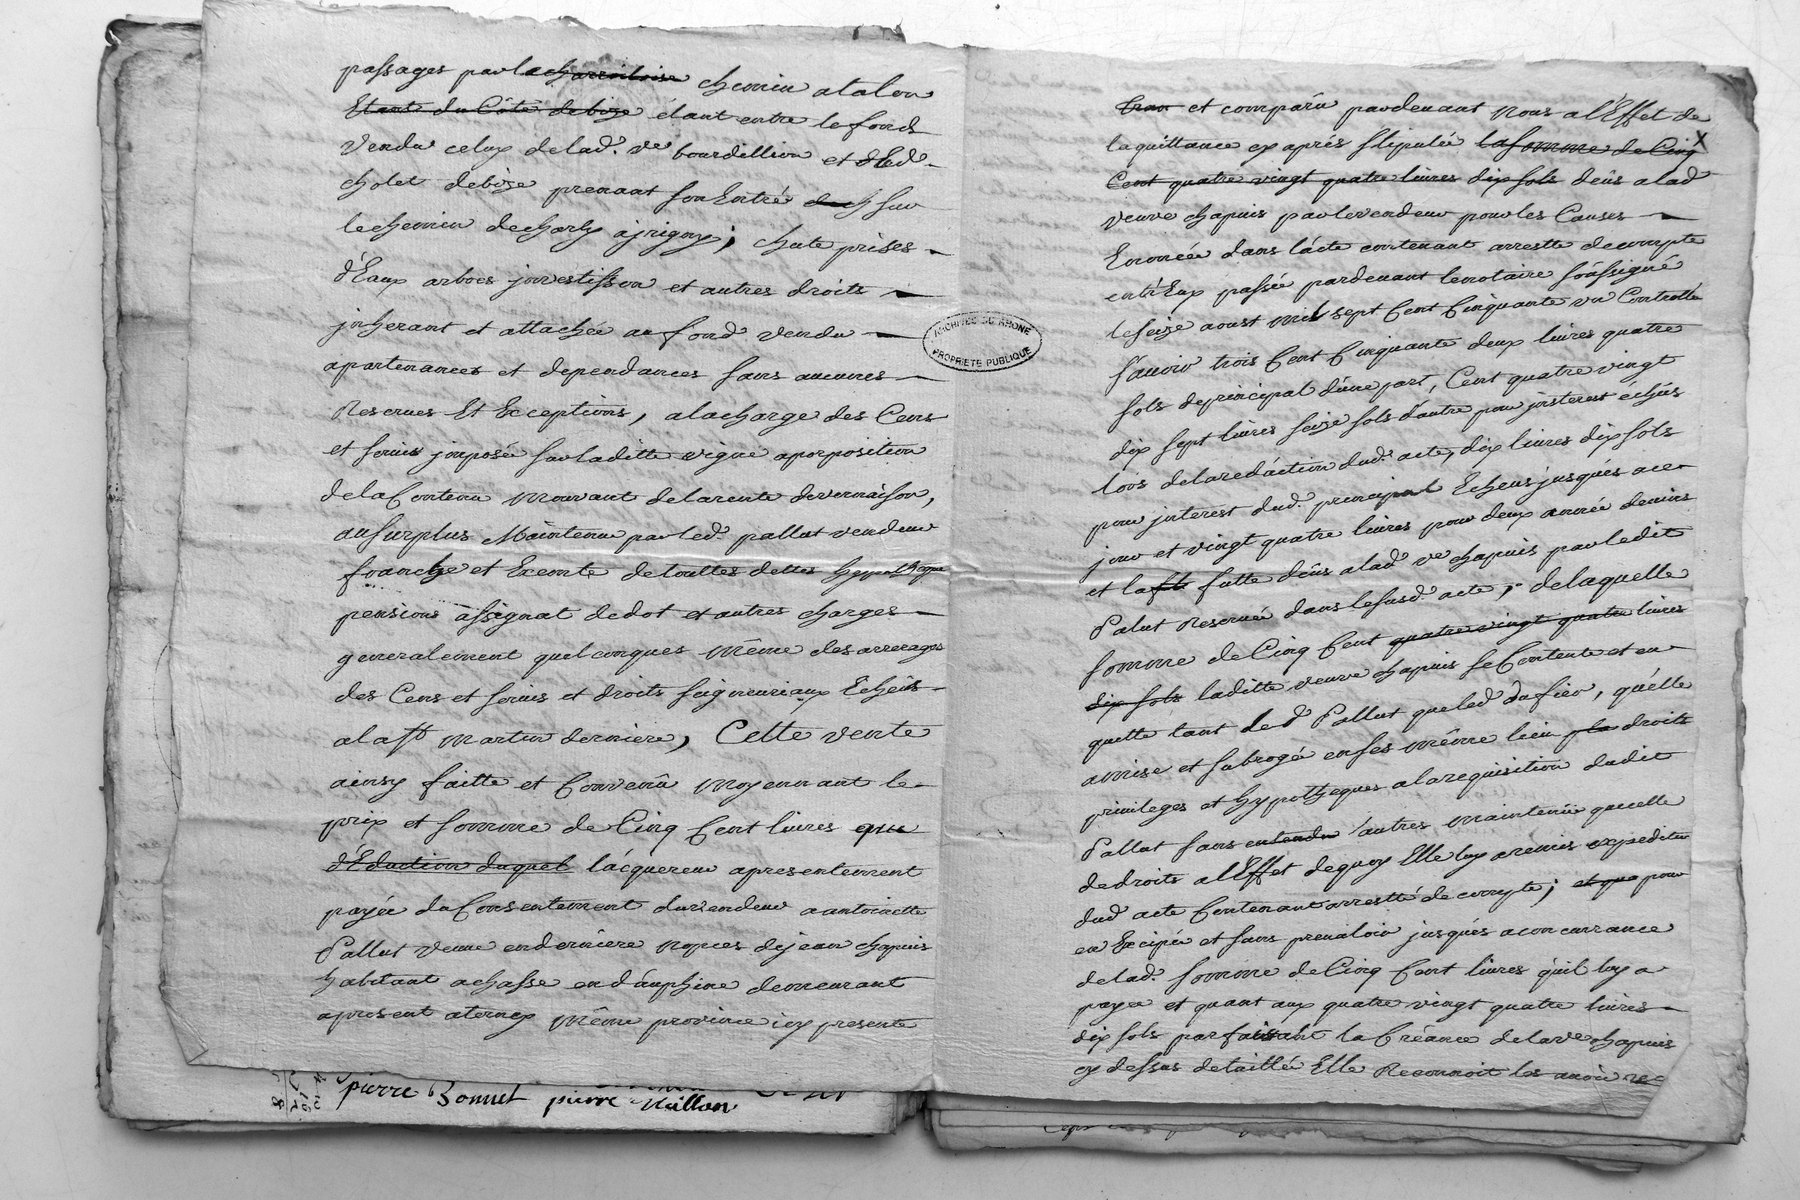 passages par la charriboise chemin a talon
Etant du Côté debize étant entre le fond
Vendu celuy delad.e ve bourdillion et dled.
cholet debize prenant son Entrée du ch sur
le chemin de charly a jrigny; chute prises
d'Eaux arbres jnvestisson et autres droits
jnherant et attachée au fond vendu
apartenances et dependances sans aucunes
Reserves Et Exceptions, a la charge des Cens
et servis jmposée sur laditte vigne a porposition
de la Contenu Mouvant de la rente de vernaison,
au surplus Maintenu par led. pallut vendeur
franche et Exemte de touttes dettes hypotheque
pensions assignat de dot et autres charges
generalement quelconques même des arrerages
des Cens et servis et droits seigneuriaux Echeûs
a la st martin derniere, Cette vente
ainsy faitte et Convenû moyennant le
prix et somme de Cinq Cent livres que
d'Eduction duquel l'acquereur apresentement
payée du Consentement du vendeur a antoinette
Pallut veuve en derniere nopces de jean chapuis
habitant a chasse en dauphine demeurant
apresent a ternay même province icy presente
pierre Bonnet pierre Maillon
ARCHIVES DU RHONE
PROPRIETE PUBLIQUE
et comparû pardevant nous a l'Effet de
la quittance cy aprés stipulée la somme de Cinq
Cent quatre vingt quatre livres dix sols deûs a lad
veuve chapuis par le vendeur pour les Causes
Enoncée dans l'acte contenant arrestte de compte
entr'Eux passée pardevant le notaire soussigné
le seize aoust mil sept Cent Cinquante un Controllé
sçauoir trois Cent Cinquante deux livres quatre
sols de principal d'une part, Cent quatre vingt
dix sept livres seize sols d'autre pour jnterest échûs
lors de la redaction dud. acte, dix livres dix sols
pour jnterest dud. principal Echeus jusqués a ce
jour et vingt quatre livres pour deux année de vins
et la ft futte deûs a lad ve chapuis par ledit
Palut Reservée dans le susd. acte; de laquelle
somme de Cinq Cent quatre vingt quatre livres
dix sols laditte veuve chapuis se Contente et en
quitte tant led Pallut que led dafieu, qu'elle
a mise et subrogé en ses même lieu pla droits
privileges et hypotheques a la requisition dudit
Pallut sans entendu autres maintenüe que celle
de droits a l'Effet de quoy Elle luy a remis expedition
dud acte Contenant arrestté de compte; et que pour
en Excipée et sans prevaloir jusqués a concurrance
delad. somme de Cinq Cent livres qu'il luy a
payee et quant aux quatre vingt quatre livres
dix sols parfaisant la Créance de la ve chapuis
cy dessus detaillée Elle Reconnoit les avoir